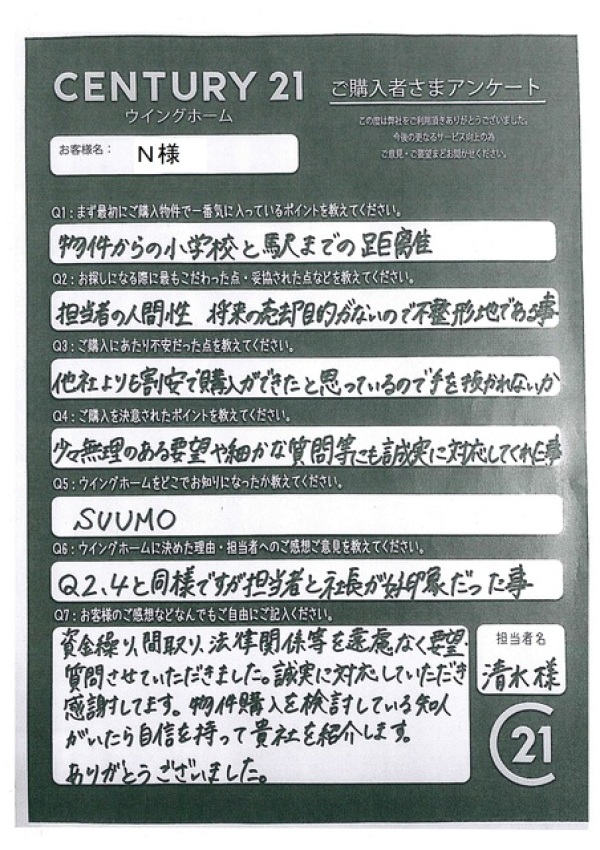 CENTURY 21
ウイングホーム
ご購入者さまアンケート
この度は弊社をご利用頂きありがとうございました。
今後の更なるサービス向上の為
ご意見・ご要望をお聞かせください。
お客様名： N様
Q1：まず最初にご購入物件で一番気に入っているポイントを教えてください。
物件からの小学校と駅までの距離
Q2：お探しになる際に最もこだわった点・妥協された点などを教えてください。
担当者の人間性 将来の売却目的がないので不整形地である事
Q3：ご購入にあたり不安だった点を教えてください。
他社よりも割安で購入ができたと思っているので手を抜かれないか
Q4：ご購入を決意されたポイントを教えてください。
少々無理のある要望や細かな質問等にも誠実に対応してくれた事
Q5：ウイングホームをどこでお知りになったか教えてください。
SUUMO
Q6：ウイングホームに決めた理由・担当者へのご感想ご意見を教えてください。
Q2、4と同様ですが担当者と社長が好印象だった事
Q7：お客様のご感想などなんでもご自由にご記入ください。
資金繰り、間取り、法律関係等を遠慮なく要望・
質問させていただきました。誠実に対応していただき
感謝してます。物件購入を検討している知人
がいたら自信を持って貴社を紹介します。
ありがとうございました。
担当者名
清水様
C21